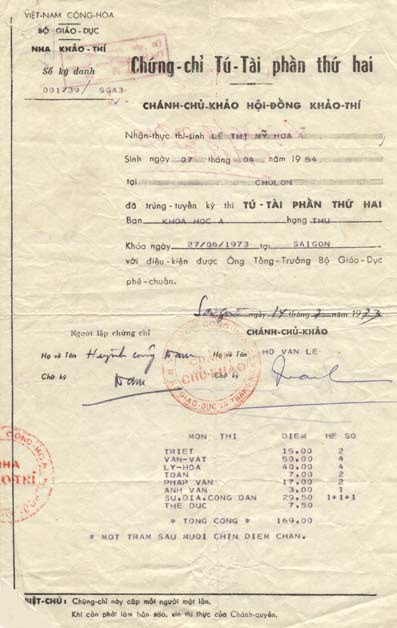 VIỆT-NAM CỘNG-HÒA
BỘ GIÁO-DỤC
NHA KHẢO-THÍ
Số ký danh
001739/ SGA3
Chứng-chỉ Tú-Tài phần thứ hai
CHÁNH-CHỦ-KHẢO HỘI-ĐỒNG KHẢO-THÍ
Nhận-thực thí-sinh LÊ THỊ MỸ HOA
Sinh ngày 07 tháng 04 năm 1954
tại CHOLON
đã trúng-tuyển kỳ thi TÚ-TÀI PHẦN THỨ HAI
Ban KHOA HOC A hạng THU
Khóa ngày 27/06/1973 tại SAIGON
với điều-kiện được Ông Tổng-Trưởng Bộ Giáo-Dục
phê-chuẩn.
Saigon ngày 14 tháng 7 năm 1973
Người lập chứng chỉ CHÁNH-CHỦ-KHẢO
Họ và Tên Huỳnh công Nam Họ và Tên HO VAN LE
Chữ ký Nam Chữ ký
CHÁNH CHỦ-KHẢO
MON THI DIEM HE SO
TRIET 15.00 2
VAN-VAT 50.00 4
LY-HOA 40.00 4
TOAN 7.00 2
PHAP VAN 17.00 2
ANH VAN 3.00 1
SU.DIA.CONG DAN 29.50 1+1+1
THE DUC 7.50
* TONG CONG * 169.00
* MOT TRAM SAU MUOI CHIN DIEM CHAN.
NHA
KHẢO-THÍ
BIỆT-CHÚ : Chứng-chỉ này cấp mỗi người một lần.
Khi cần phải làm bản sao, xin thị thực của Chánh-quyền.